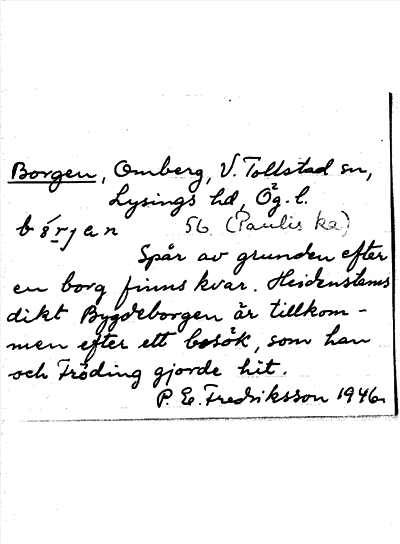 Borgen, Omberg, V. Tollstad sn,
Lysings hd, Ög. l.
56. (Paulis ka)
Spår av grunden efter
en borg finns kvar. Heidenstams
dikt Bygdeborgen är tillkom-
men efter ett besök, som han
och Fröding gjorde hit.
P. E. Fredriksson 1946.